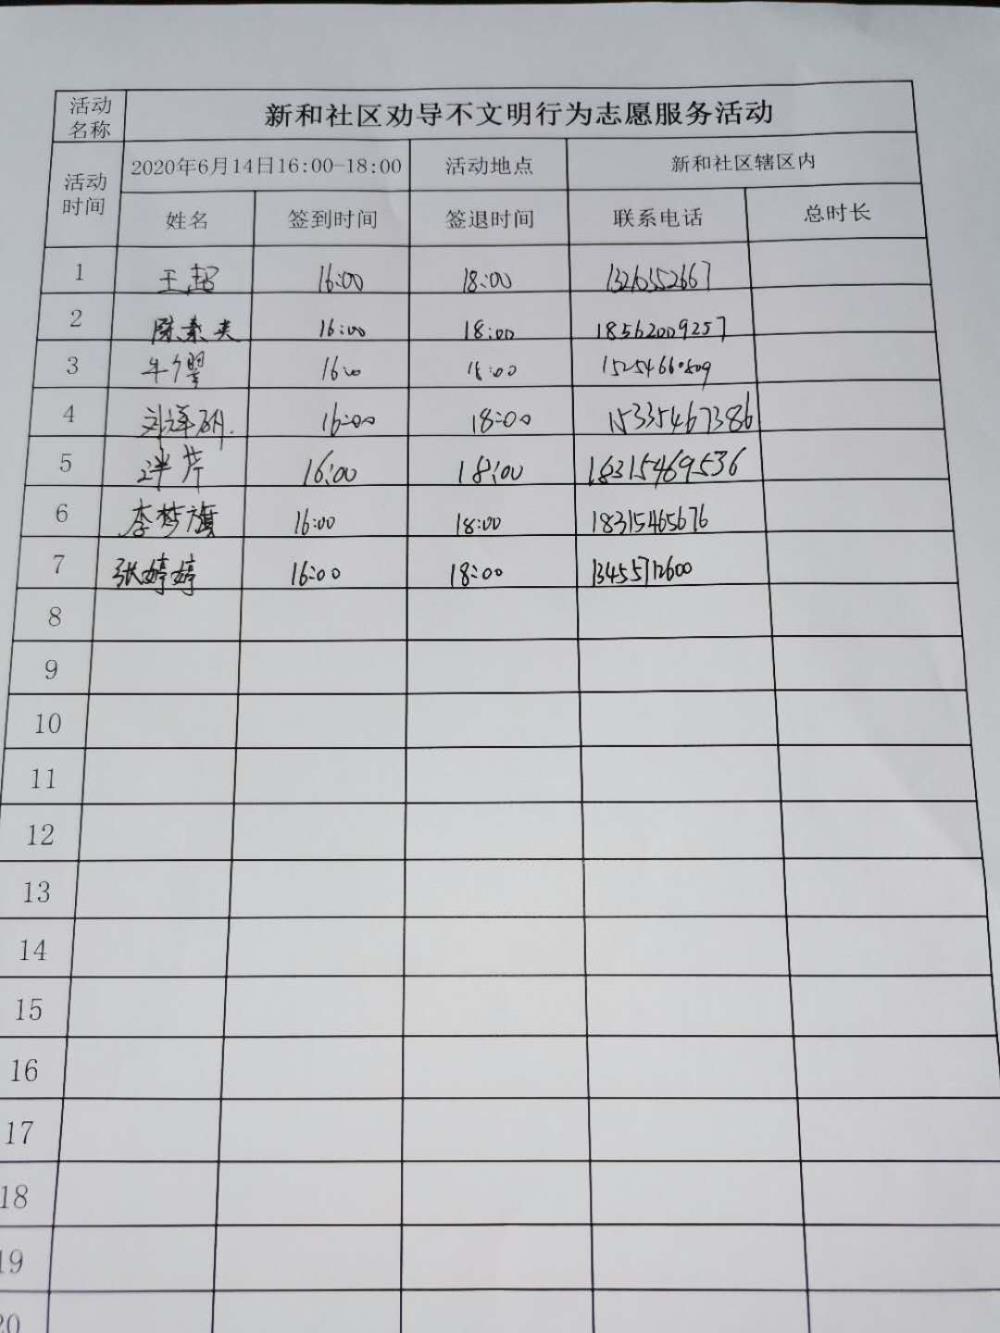 活动名称 新和社区劝导不文明行为志愿服务活动
活动时间 2020年6月14日16:00-18:00 活动地点 新和社区辖区内
姓名 签到时间 签退时间 联系电话 总时长
1 王超 16:00 18:00
2 陈素英 16:00 18:00 18562009257
3 16:00 18:00
4 16:00 18:00 15335467386
5 16:00 18:00 18315469536
6 李梦旗 16:00 18:00 18315465676
7 张婷婷 16:00 18:00 13455712600
8
9
10
11
12
13
14
15
16
17
18
19
20